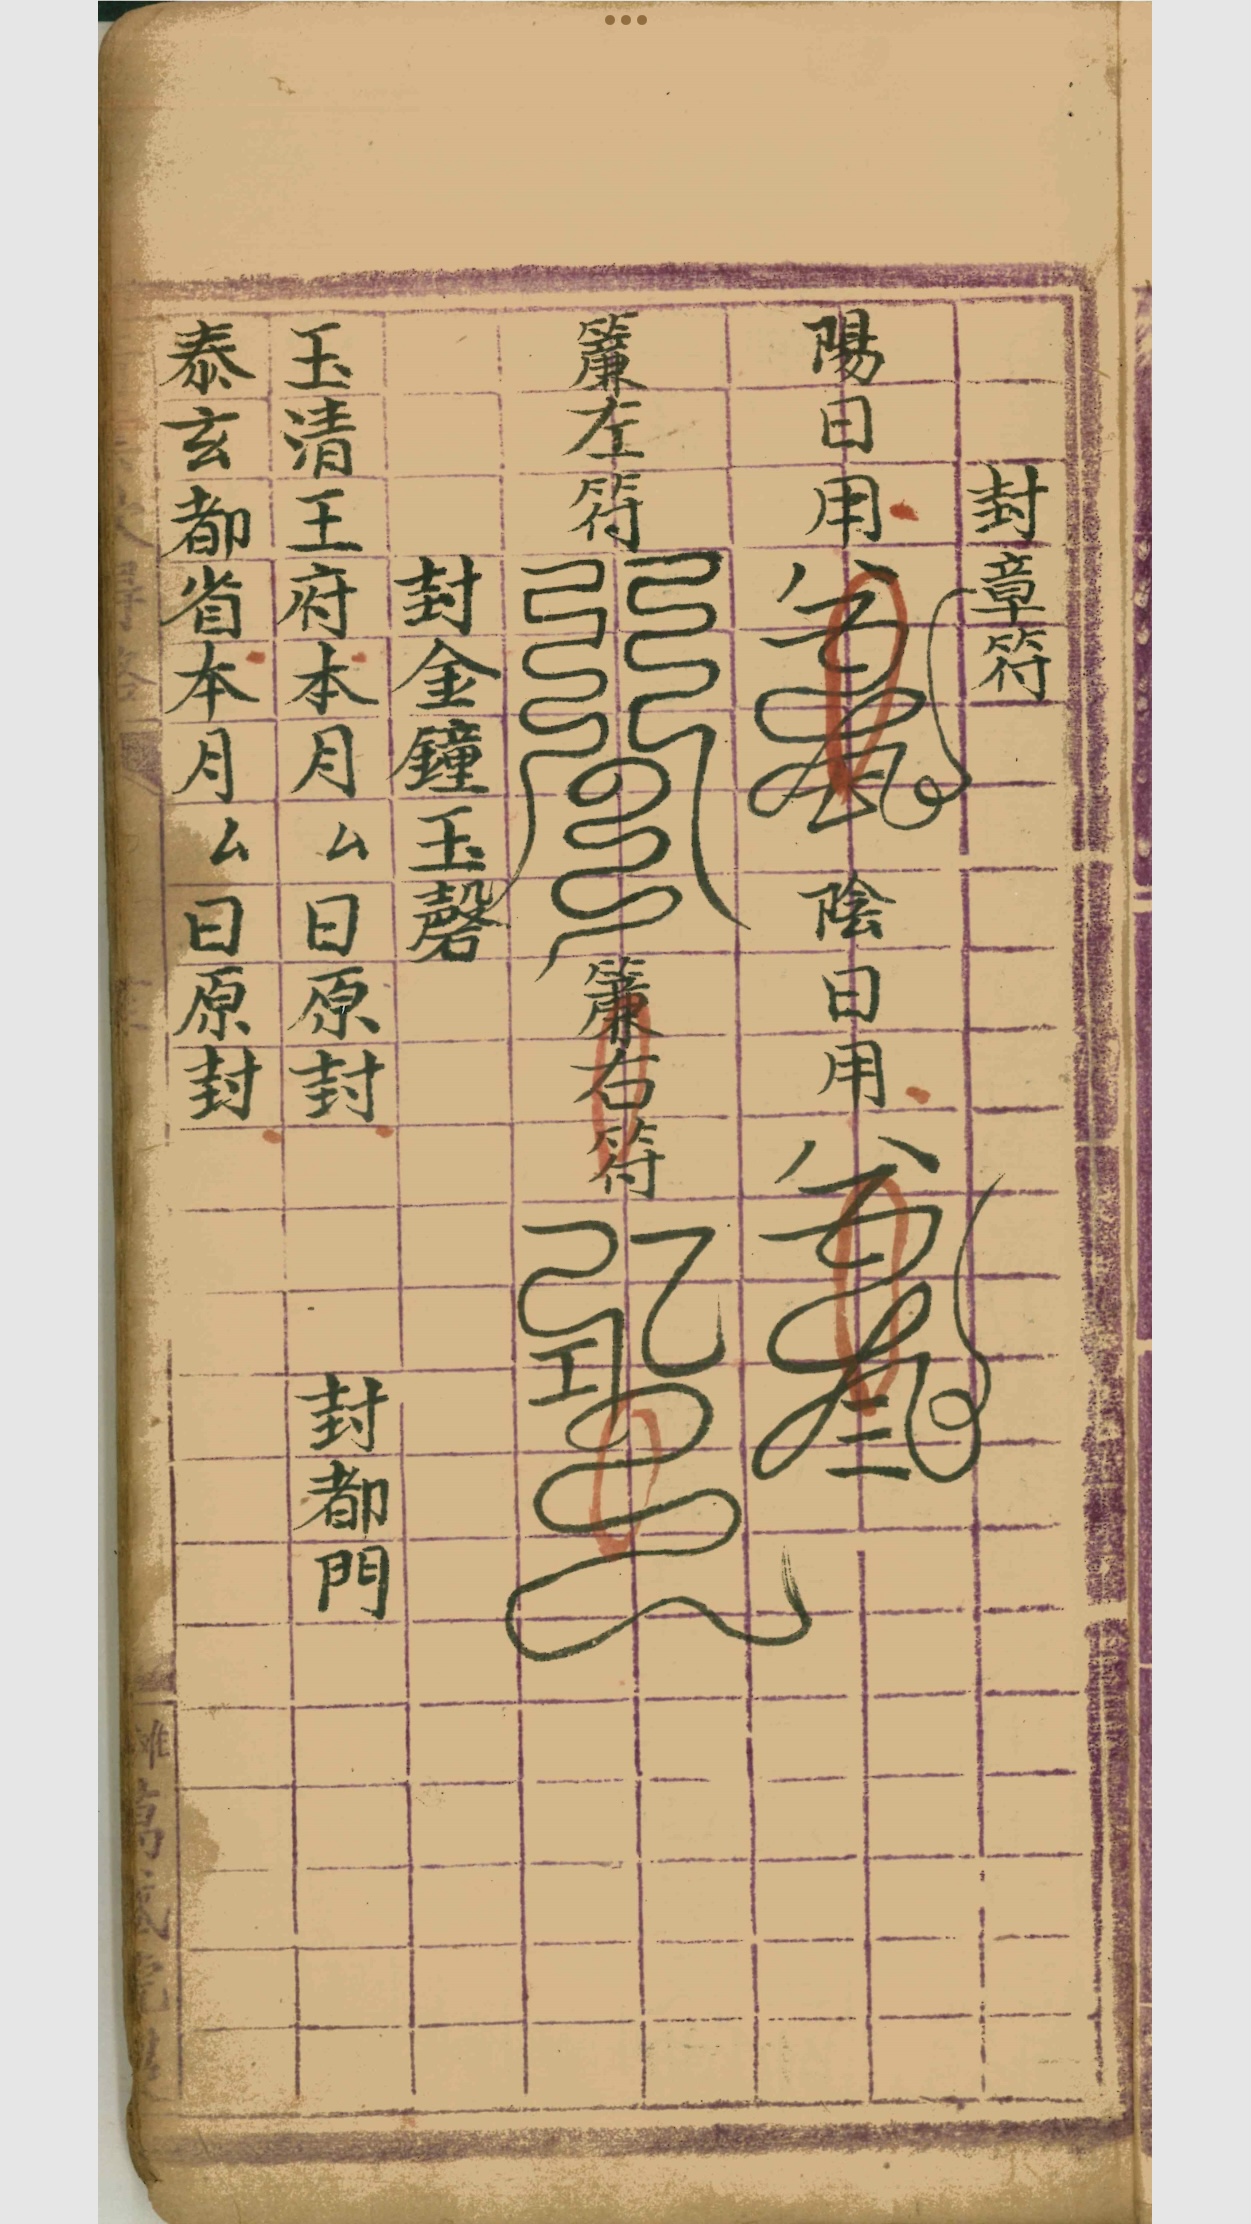 封章符
陽日用
陰日用
簾左符
簾右符
封金鐘玉磬
玉清王府本月厶日原封
封都門
泰玄都省本月厶日原封